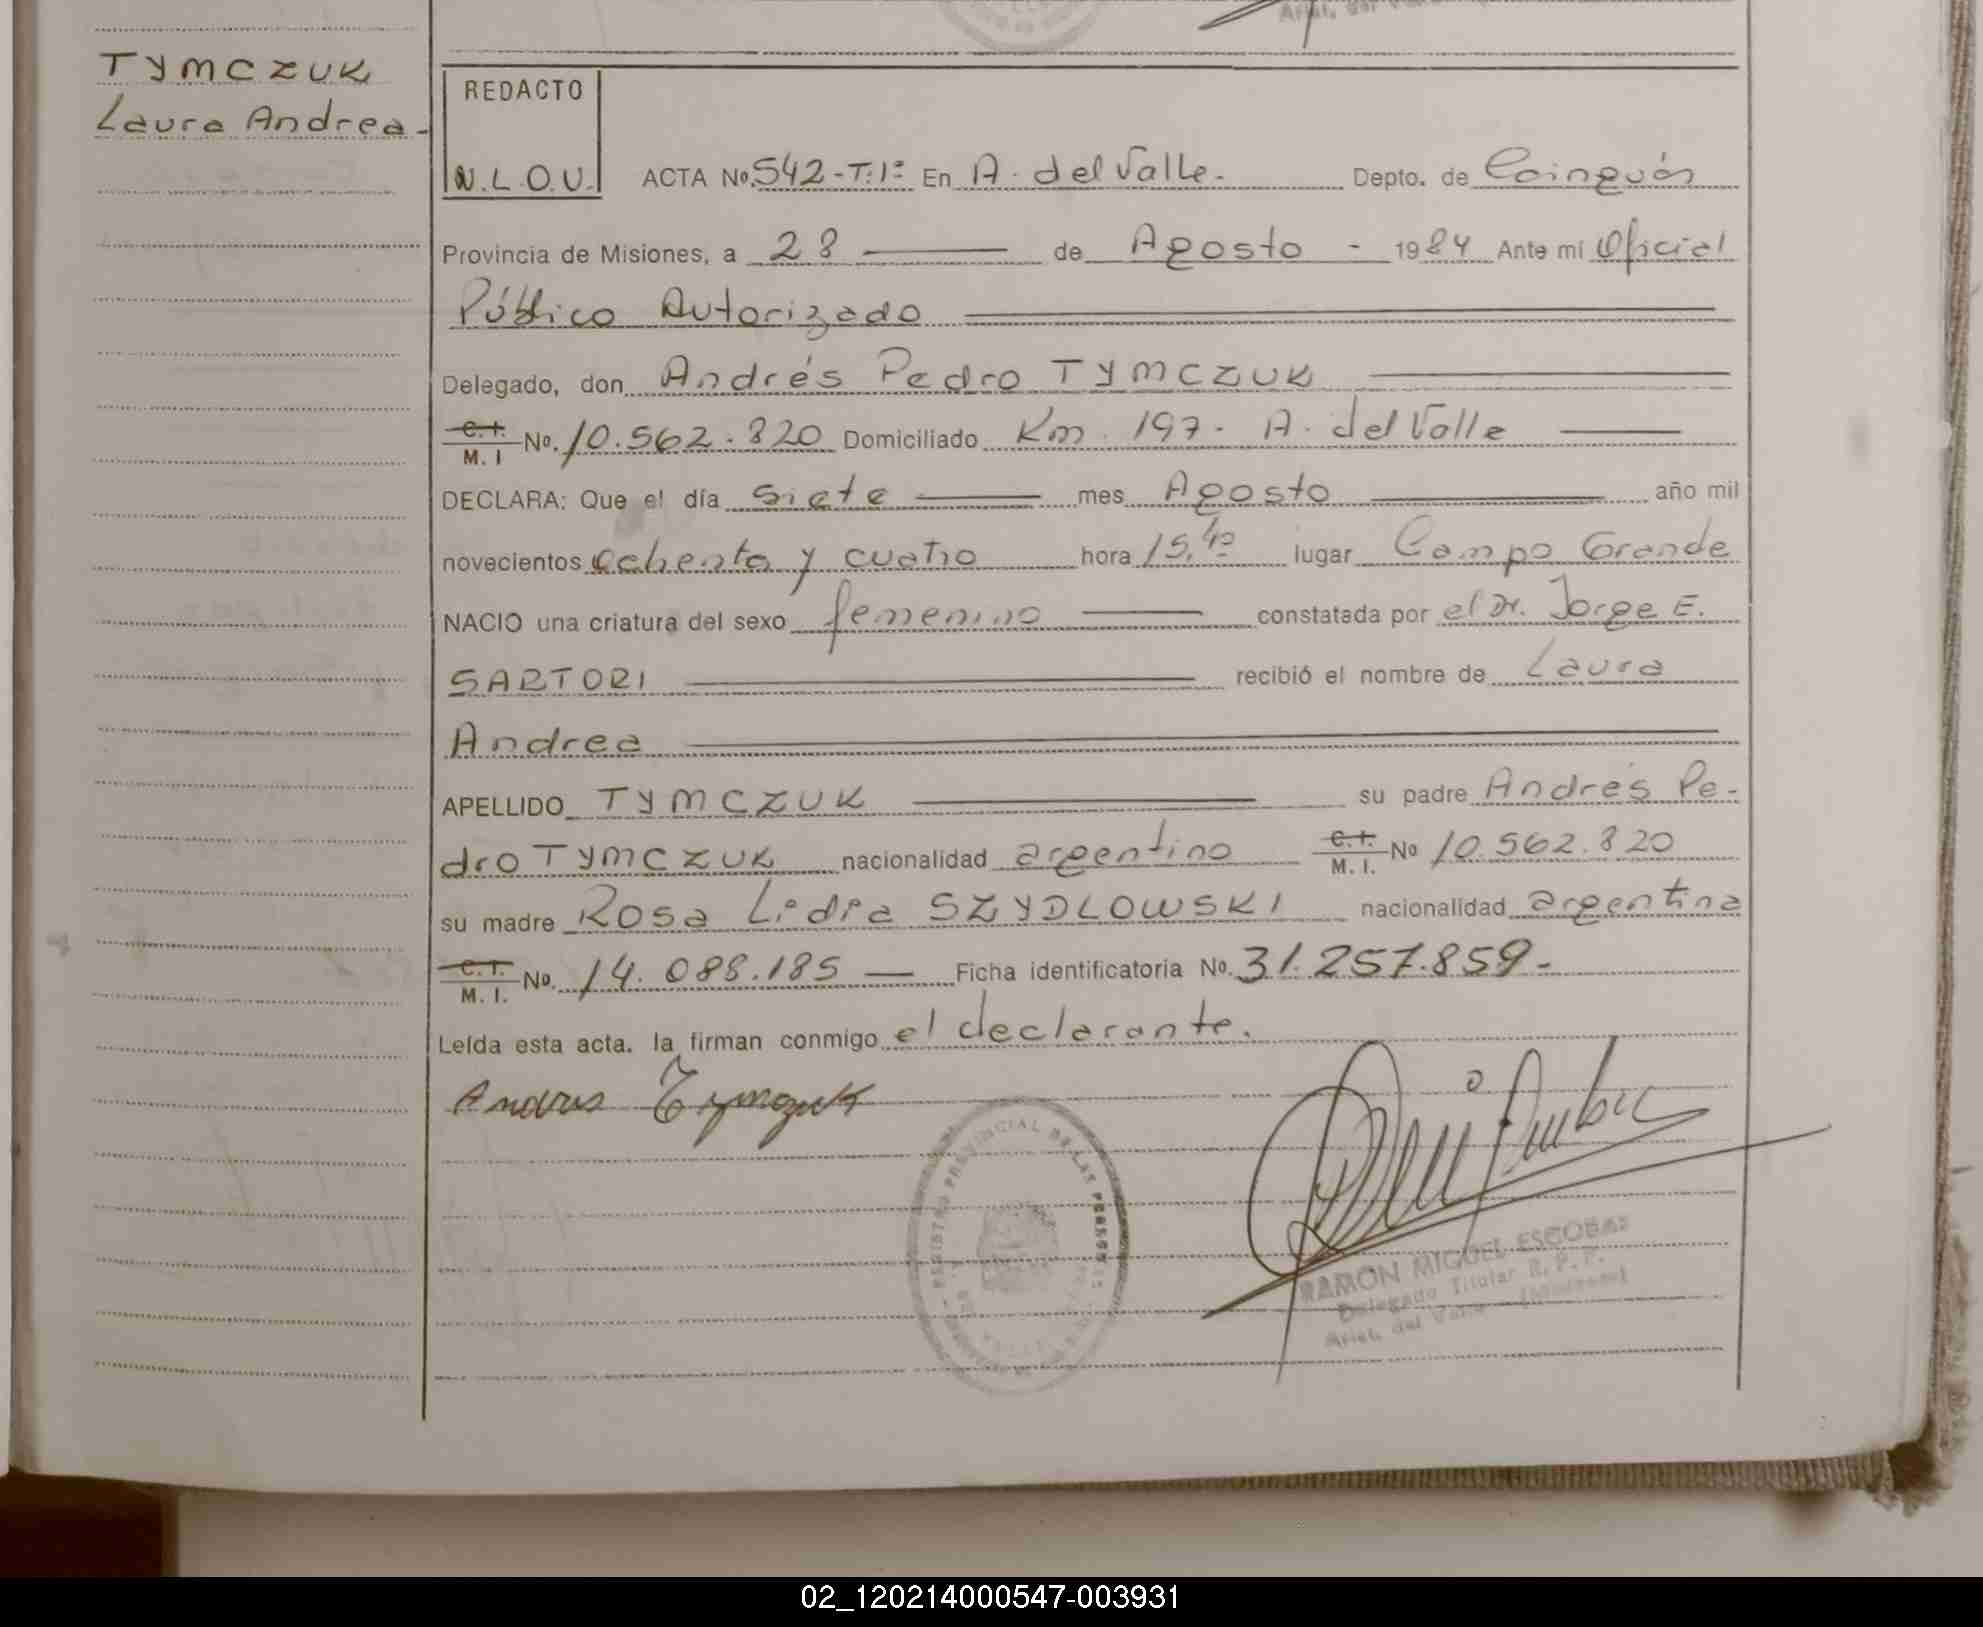 TYMCZUK
Laura Andrea-
REDACTO
N.L.O.U.
ACTA No. 542-T:1º En A. del Valle.- Depto. de Cainguás
Provincia de Misiones, a 28 de Agosto - 1984 Ante mí Oficial
Público Autorizado
Delegado, don Andrés Pedro TYMCZUK
C.I. M.I No. 10.562.820 Domiciliado Km. 197- A. del Valle
DECLARA: Que el día siete mes Agosto año mil
novecientos ochenta y cuatro hora 15,40 lugar Campo Grande
NACIO una criatura del sexo femenino constatada por el Dr. Jorge E.
SARTORI recibió el nombre de Laura
Andrea
APELLIDO TYMCZUK su padre Andrés Pe-
dro TYMCZUK nacionalidad argentino C.I. M.I. No 10.562.820
su madre Rosa Lidia SZYDLOWSKI nacionalidad argentina
C.I. M.I. No. 14.088.185 — Ficha identificatoria No. 31.257.859-
Leída esta acta. la firman conmigo el declarante.
Andres Tymczuk
REGISTRO PROVINCIAL DE LAS PERSONAS
RAMON MIGUEL ESCOBAR
Delegado Titular R.P.P.
Arist. del Valle - (Misiones)
02_120214000547-003931